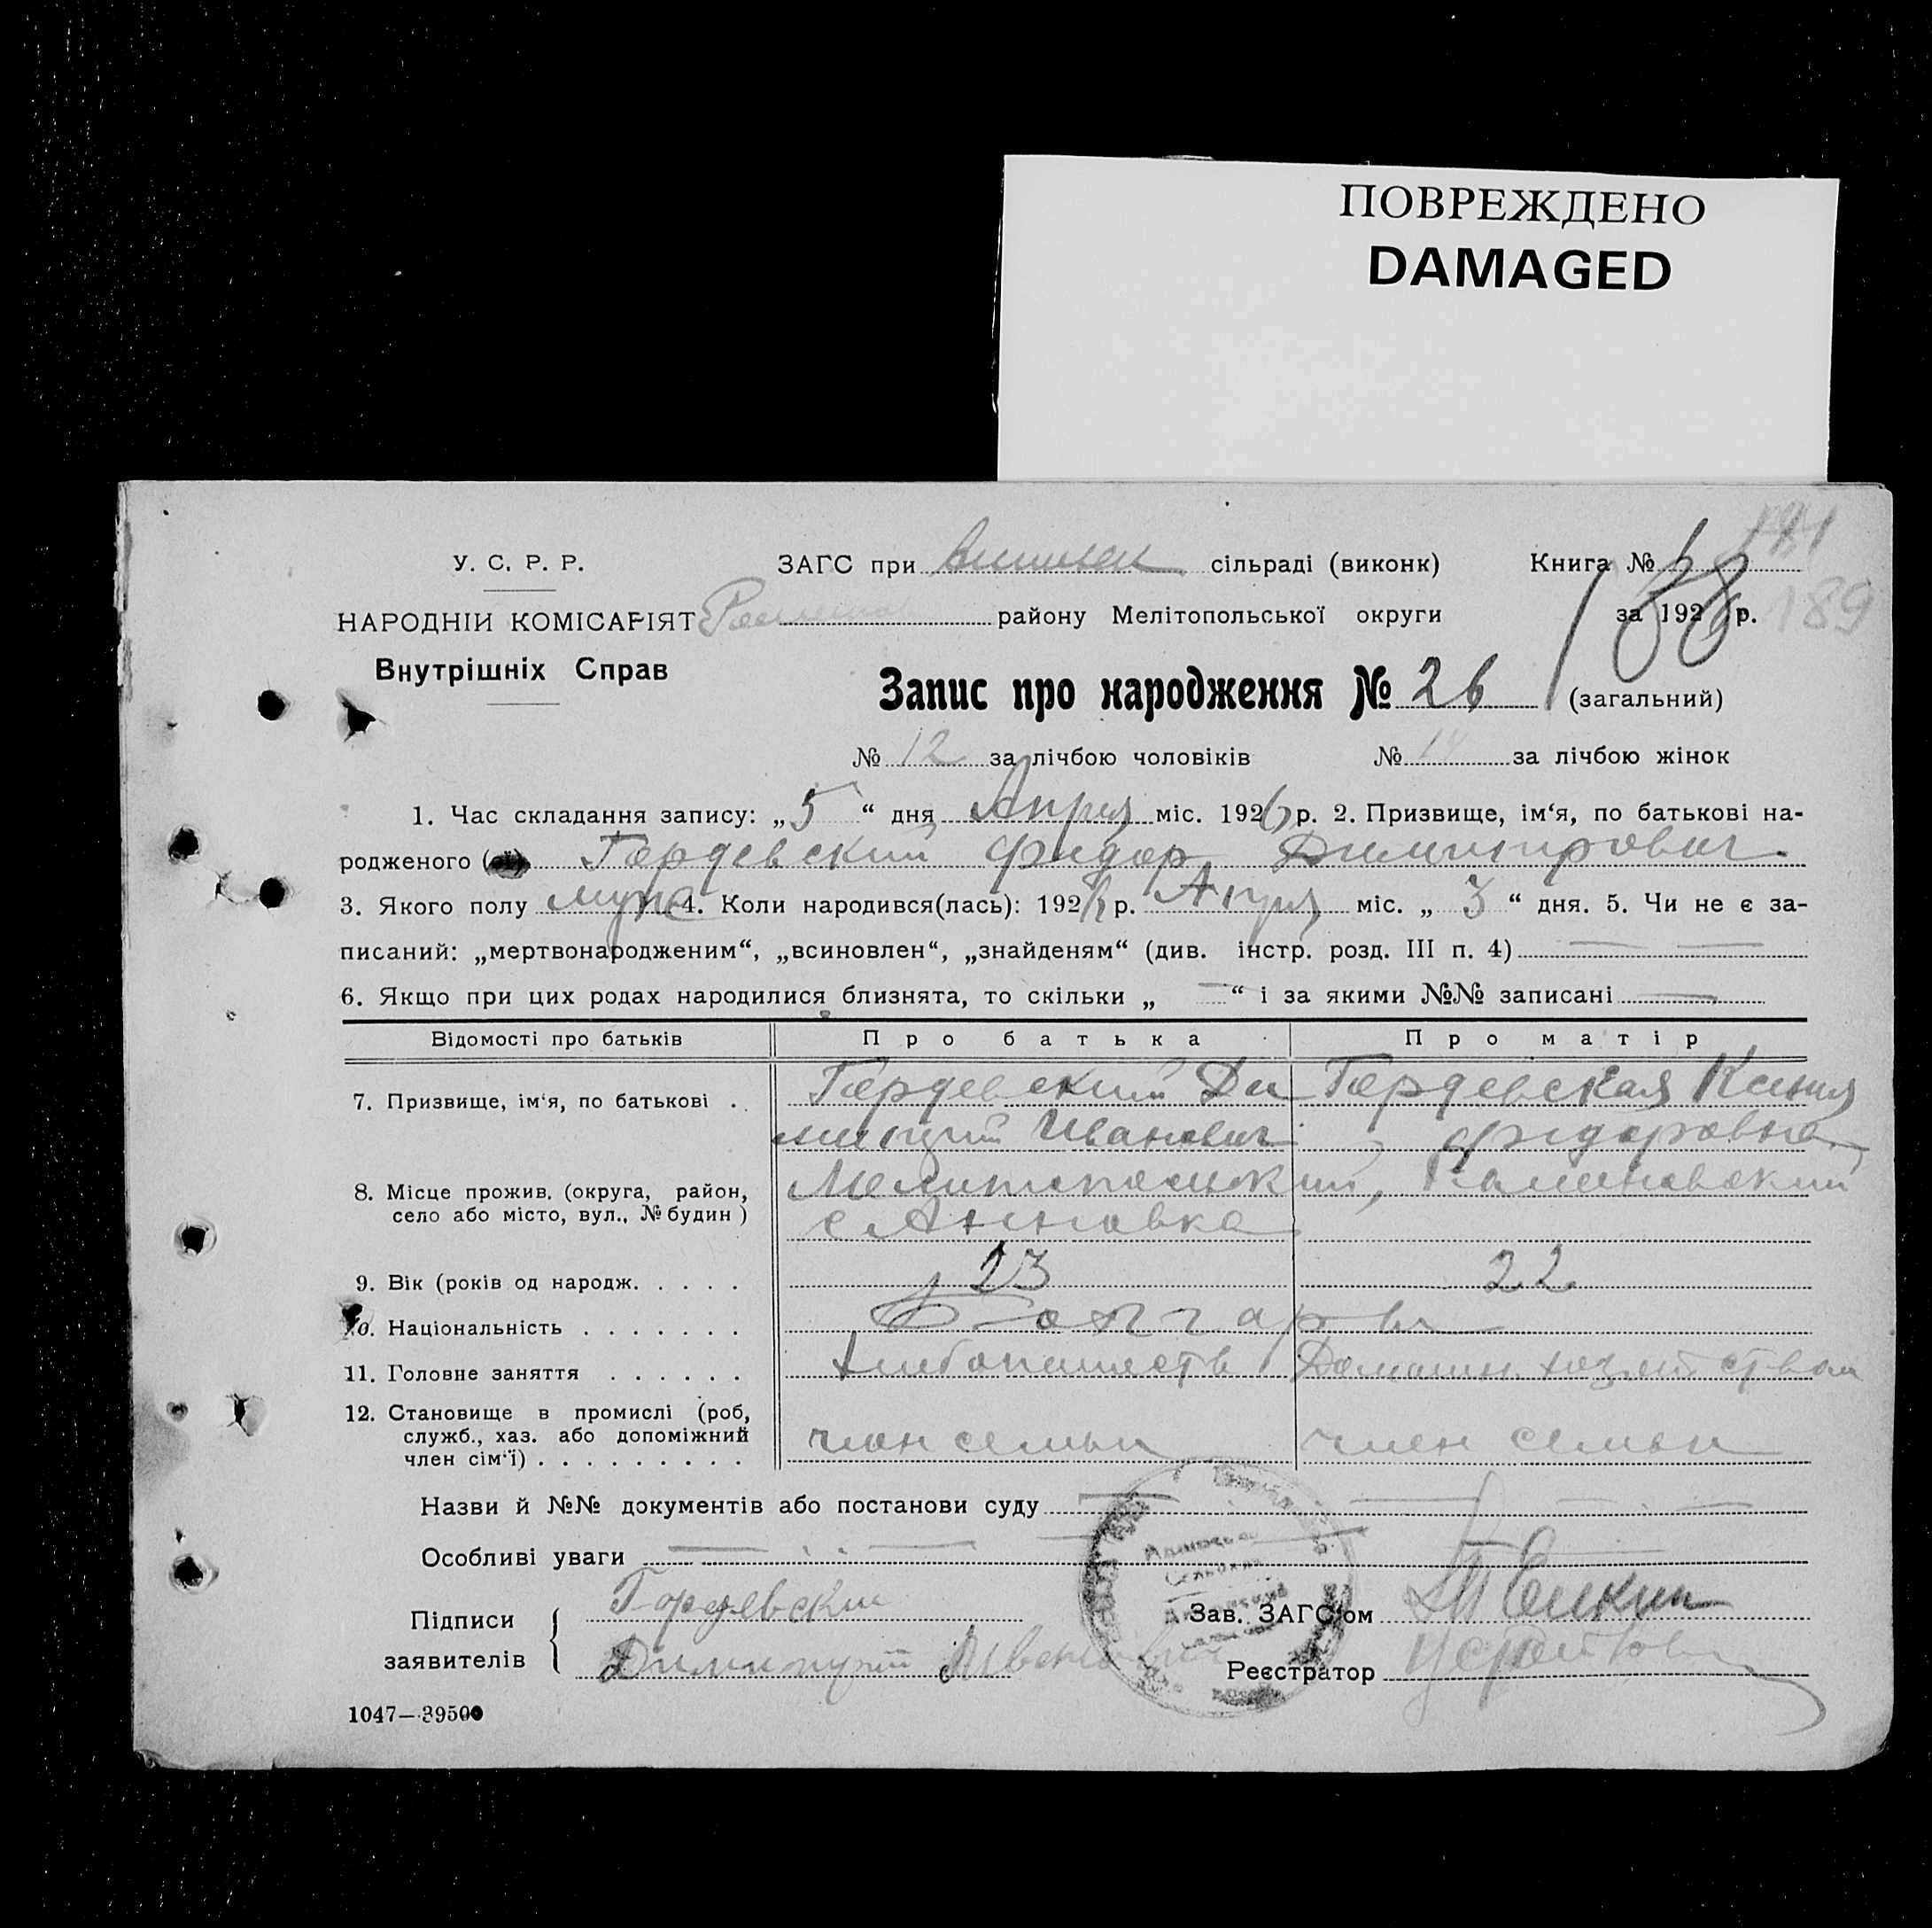 ПОВРЕЖДЕНО
DAMAGED
У. С. Р. Р.
ЗАГС при сільраді (виконк)
Книга №
НАРОДНІЙ КОМІСАРІЯТ
району Мелітопольської округи
за 1926 р.
189
188
Внутрішніх Справ
Запис про народження № 26 (загальний)
№ 12 за лічбою чоловіків № 14 за лічбою жінок
1. Час складання запису: „5“ дня Апреля міс. 1926 р. 2. Призвище, ім‘я, по батькові на-
родженого Гордевский Фидор Димитрович
3. Якого полу муж 4. Коли народився(лась): 1926 р. Апреля міс. „3“ дня. 5. Чи не є за-
писаний: „мертвонародженим“, „всиновлен“, „знайденям“ (див. інстр. розд. III п. 4)
6. Якщо при цих родах народилися близнята, то скільки „—“ і за якими №№ записані —
Відомості про батьків Про батька Про матір
7. Призвище, ім‘я, по батькові . Гордевский Ди Гордевская Ксения
митрий Иванович Фидоровна
8. Місце прожив. (округа, район, Мелитопольский,
село або місто, вул., № будин) с Анновка
9. Вік (років од народж. . . . . 23 22
10. Національність . . . . . . . Болгары
11. Головне заняття . . . . . . Хлебопашеств Домашн. хозяйством
12. Становище в промислі (роб,
служб., хаз. або допоміжний член семьи член семьи
член сім‘ї) . . . . . . . . .
Назви й №№ документів або постанови суду
Особливі уваги
Підписи Гордевский
Зав. ЗАГС‘ом
заявителів Димитрий Иванович
Реєстратор
1047—39500